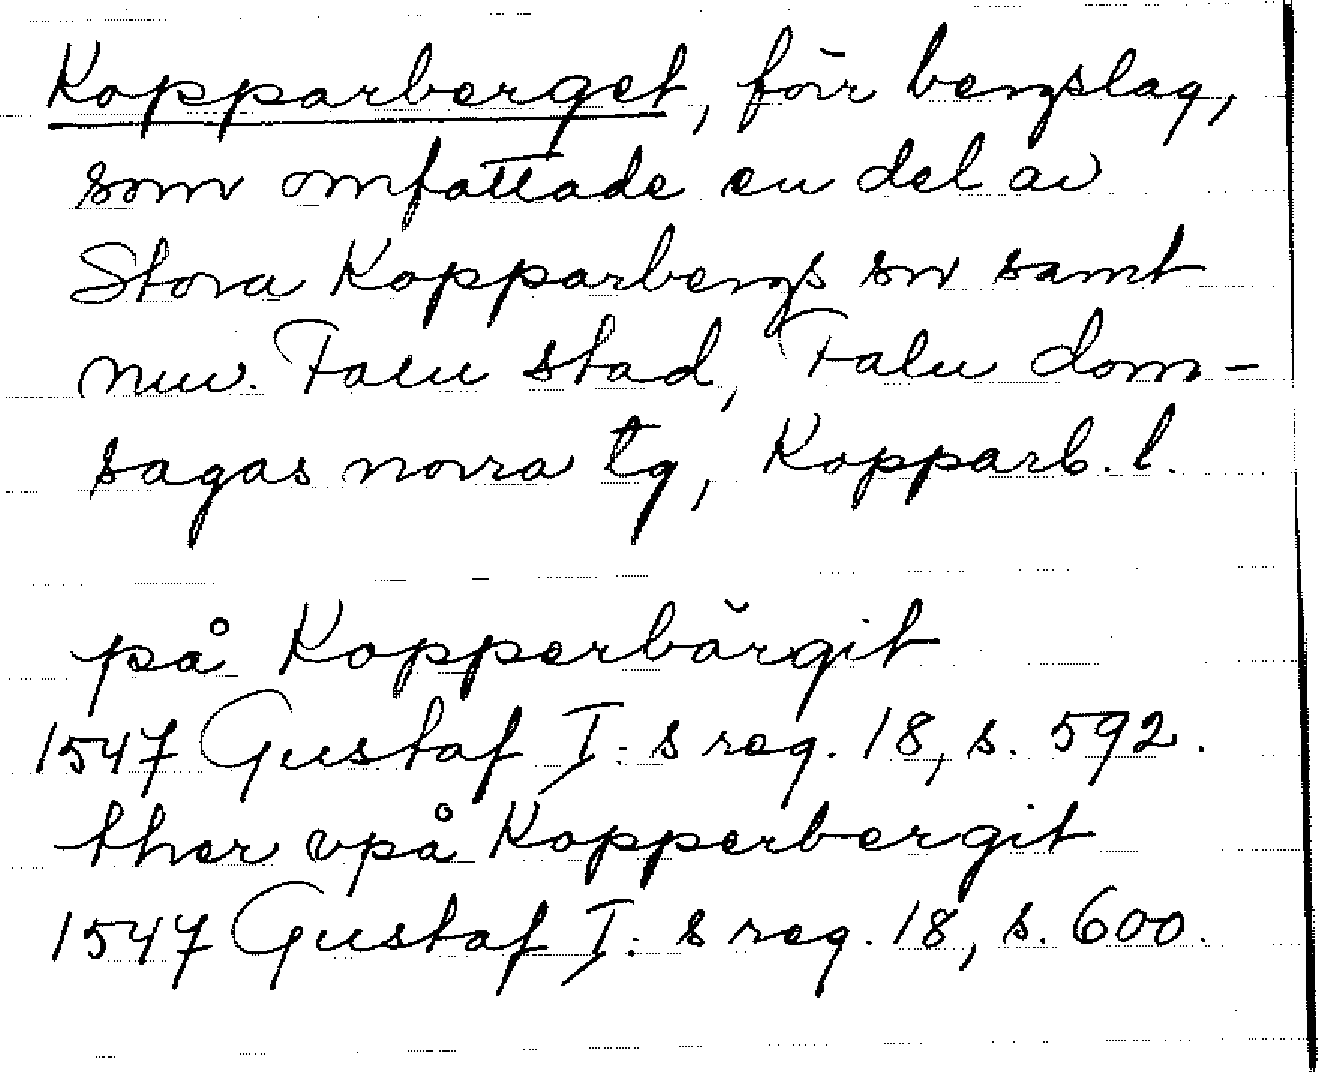 Kopparberget, förr bergslag,
som omfattade en del av
Stora Kopparbergs sn samt
nuv. Falu stad, Falu dom-
sagas norra tg, Kopparb. l.
på Kopperbärgit
1547 Gustaf I:s reg. 18, s. 592.
ther vpå Kopperbergit
1547 Gustaf I:s reg. 18, s. 600.